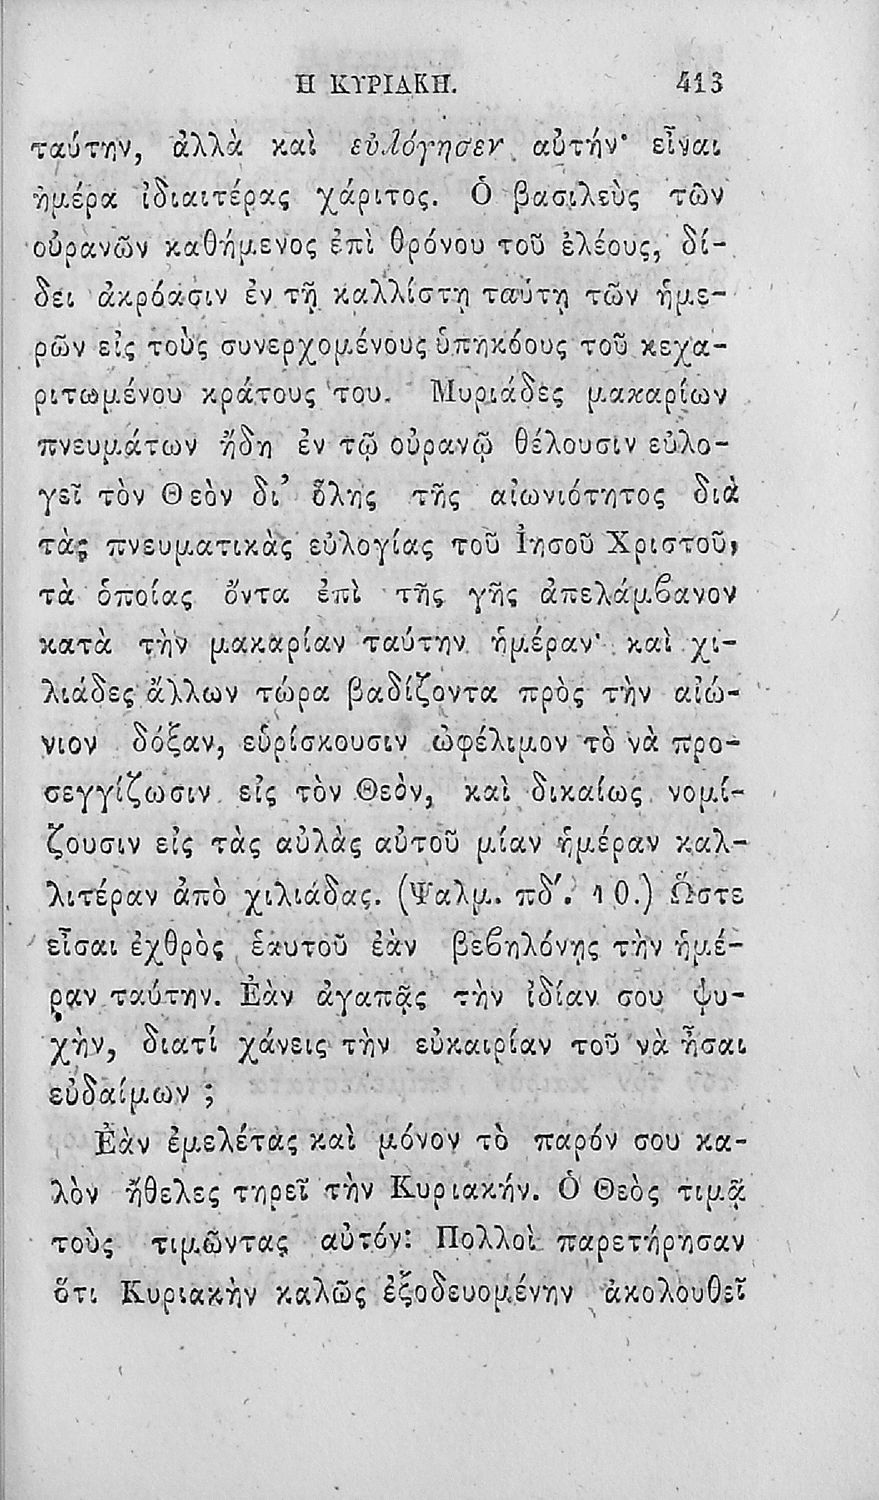 Η ΚΥΡΙΑΚΗ. 413
ταύτην, ἀλλὰ καὶ εὐλόγησεν αὐτήν· εἶναι
ἡμέρα ἰδιαιτέρας χάριτος. Ὁ βασιλεὺς τῶν
οὐρανῶν καθήμενος ἐπὶ θρόνου τοῦ ἐλέους, δί-
δει ἀκρόασιν ἐν τῇ καλλίστῃ ταύτῃ τῶν ἡμε-
ρῶν εἰς τοὺς συνερχομένους ὑπηκόους τοῦ κεχα-
ριτωμένου κράτους του. Μυριάδες μακαρίων
πνευμάτων ἤδη ἐν τῷ οὐρανῷ θέλουσιν εὐλο-
γεῖ τὸν Θεὸν δι’ ὅλης τῆς αἰωνιότητος διὰ
τὰς πνευματικὰς εὐλογίας τοῦ Ἰησοῦ Χριστοῦ,
τὰ ὁποίας ὄντα ἐπὶ τῆς γῆς ἀπελάμβανον
κατὰ τὴν μακαρίαν ταύτην ἡμέραν· καὶ χι-
λιάδες ἄλλων τώρα βαδίζοντα πρὸς τὴν αἰώ-
νιον δόξαν, εὑρίσκουσιν ὠφέλιμον τὸ νὰ προ-
σεγγίζωσιν εἰς τὸν Θεὸν, καὶ δικαίως νομί-
ζουσιν εἰς τὰς αὐλὰς αὐτοῦ μίαν ἡμέραν καλ-
λιτέραν ἀπὸ χιλιάδας. (Ψαλμ. πδ΄. 10.) Ὥστε
εἶσαι ἐχθρὸς ἑαυτοῦ ἐὰν βεβηλόνῃς τὴν ἡμέ-
ραν ταύτην. Ἐὰν ἀγαπᾷς τὴν ἰδίαν σου ψυ-
χὴν, διατί χάνεις τὴν εὐκαιρίαν τοῦ νὰ ἦσαι
εὐδαίμων ;
Ἐὰν ἐμελέτας καὶ μόνον τὸ παρόν σου κα-
λὸν ἤθελες τηρεῖ τὴν Κυριακήν. Ὁ Θεὸς τιμᾷ
τοὺς τιμῶντας αὐτόν: Πολλοὶ παρετήρησαν
ὅτι Κυριακὴν καλῶς ἐξοδευομένην ἀκολουθεῖ